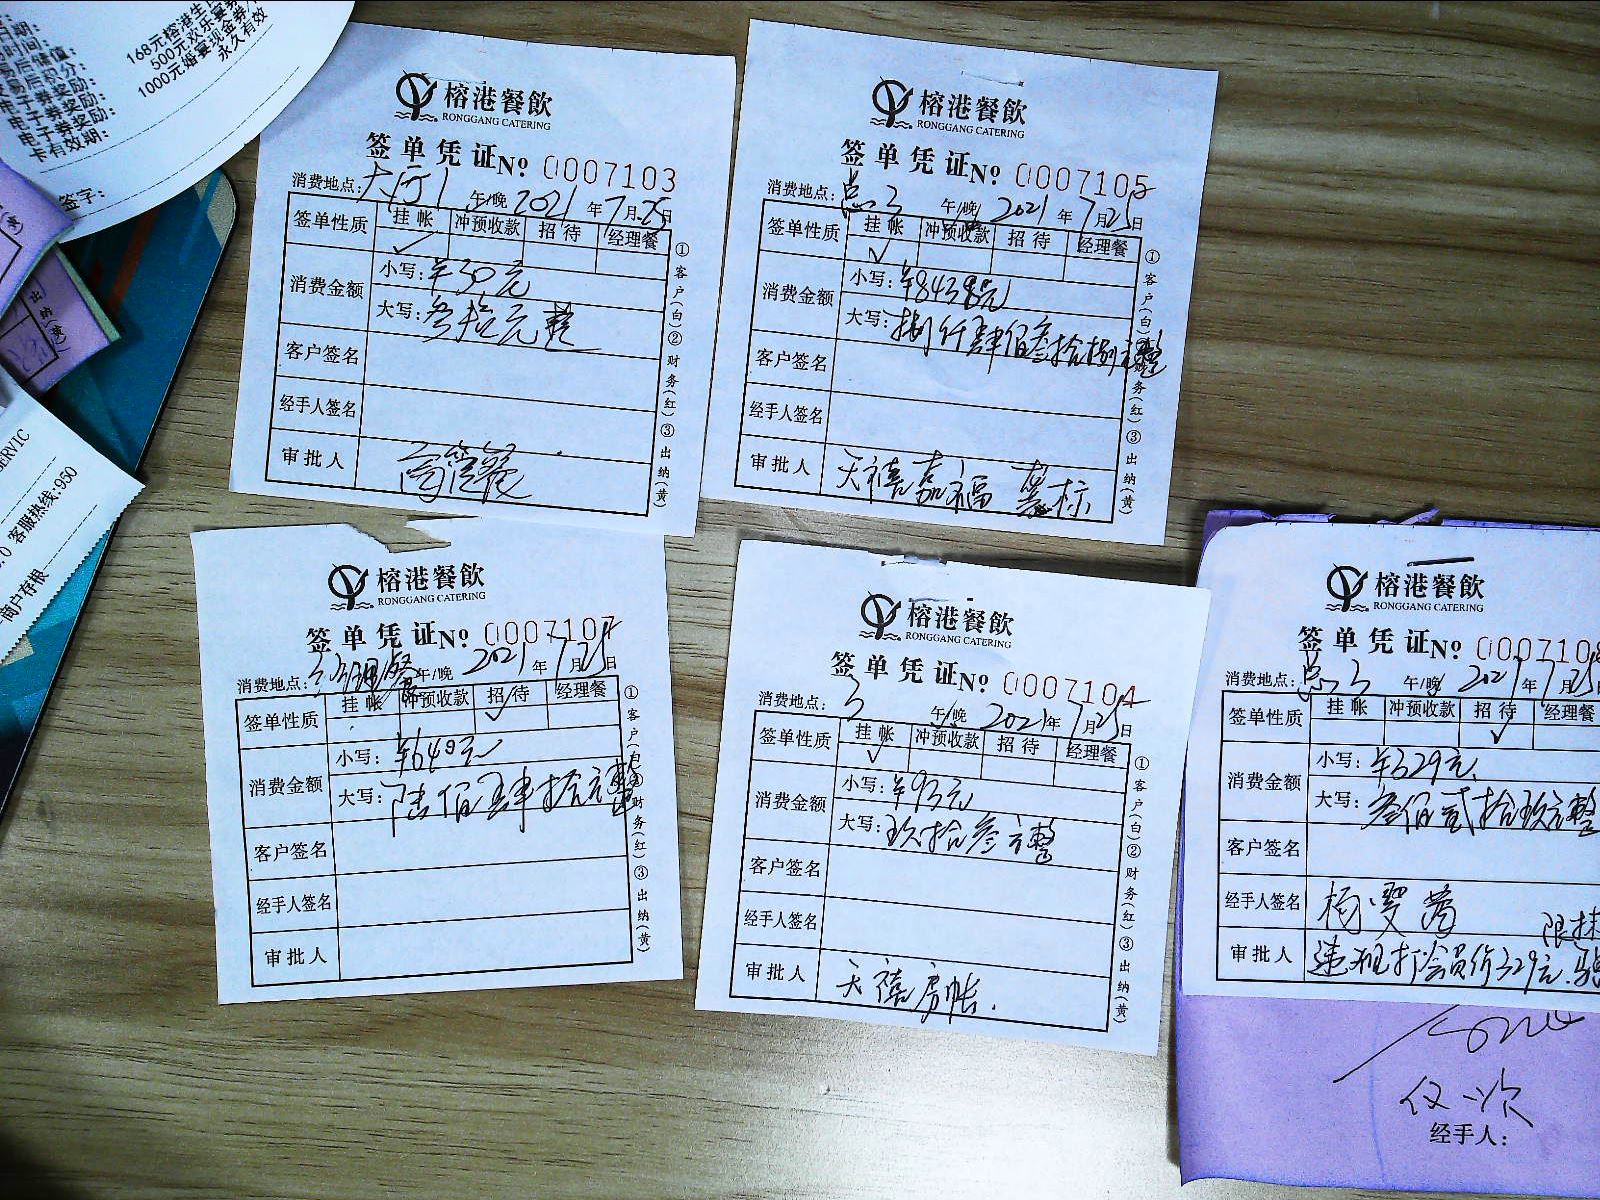 时间:
易后储值:
易后积分:
电子券奖励: 168元榕港生日
电子券奖励: 500元欢乐宴券
电子券奖励: 1000元婚宴现金券
卡有效期: 永久有效
签字:
出纳(黄)
SERVIC
客服热线:950
商户存根
榕港餐飲
RONGGANG CATERING
签单凭证 No 0007103
消费地点: 大厅1 午/晚 2021年7月25日
签单性质 挂帐 冲预收款 招待 经理餐
✓
消费金额 小写: ¥30元
大写: 叁拾元整
客户签名
经手人签名
审批人 高管餐
①客户(白)②财务(红)③出纳(黄)
榕港餐飲
RONGGANG CATERING
签单凭证 No 0007105
消费地点: 点3 午/晚 2021年7月25日
签单性质 挂帐 冲预收款 招待 经理餐
✓
消费金额 小写: ¥8438元
大写: 捌仟肆佰叁拾捌元整
客户签名
经手人签名
审批人 天禧嘉福
①客户(白)②财务(红)③出纳(黄)
榕港餐飲
RONGGANG CATERING
签单凭证 No 0007107
消费地点: 经理餐 午/晚 2021年7月25日
签单性质 挂帐 冲预收款 招待 经理餐
✓
消费金额 小写: ¥640元
大写: 陆佰肆拾元整
客户签名
经手人签名
审批人
①客户(白)②财务(红)③出纳(黄)
榕港餐飲
RONGGANG CATERING
签单凭证 No 0007104
消费地点: 3 午/晚 2021年7月25日
签单性质 挂帐 冲预收款 招待 经理餐
✓
消费金额 小写: ¥93元
大写: 玖拾叁元整
客户签名
经手人签名
审批人 天禧房帐.
①客户(白)②财务(红)③出纳(黄)
榕港餐飲
RONGGANG CATERING
签单凭证 No 000710
消费地点: 点3 午/晚 2021年7月25日
签单性质 挂帐 冲预收款 招待 经理餐
✓
消费金额 小写: ¥329元
大写: 叁佰贰拾玖元整
客户签名
经手人签名 杨
审批人 打会员价329元.
仅一次
经手人: